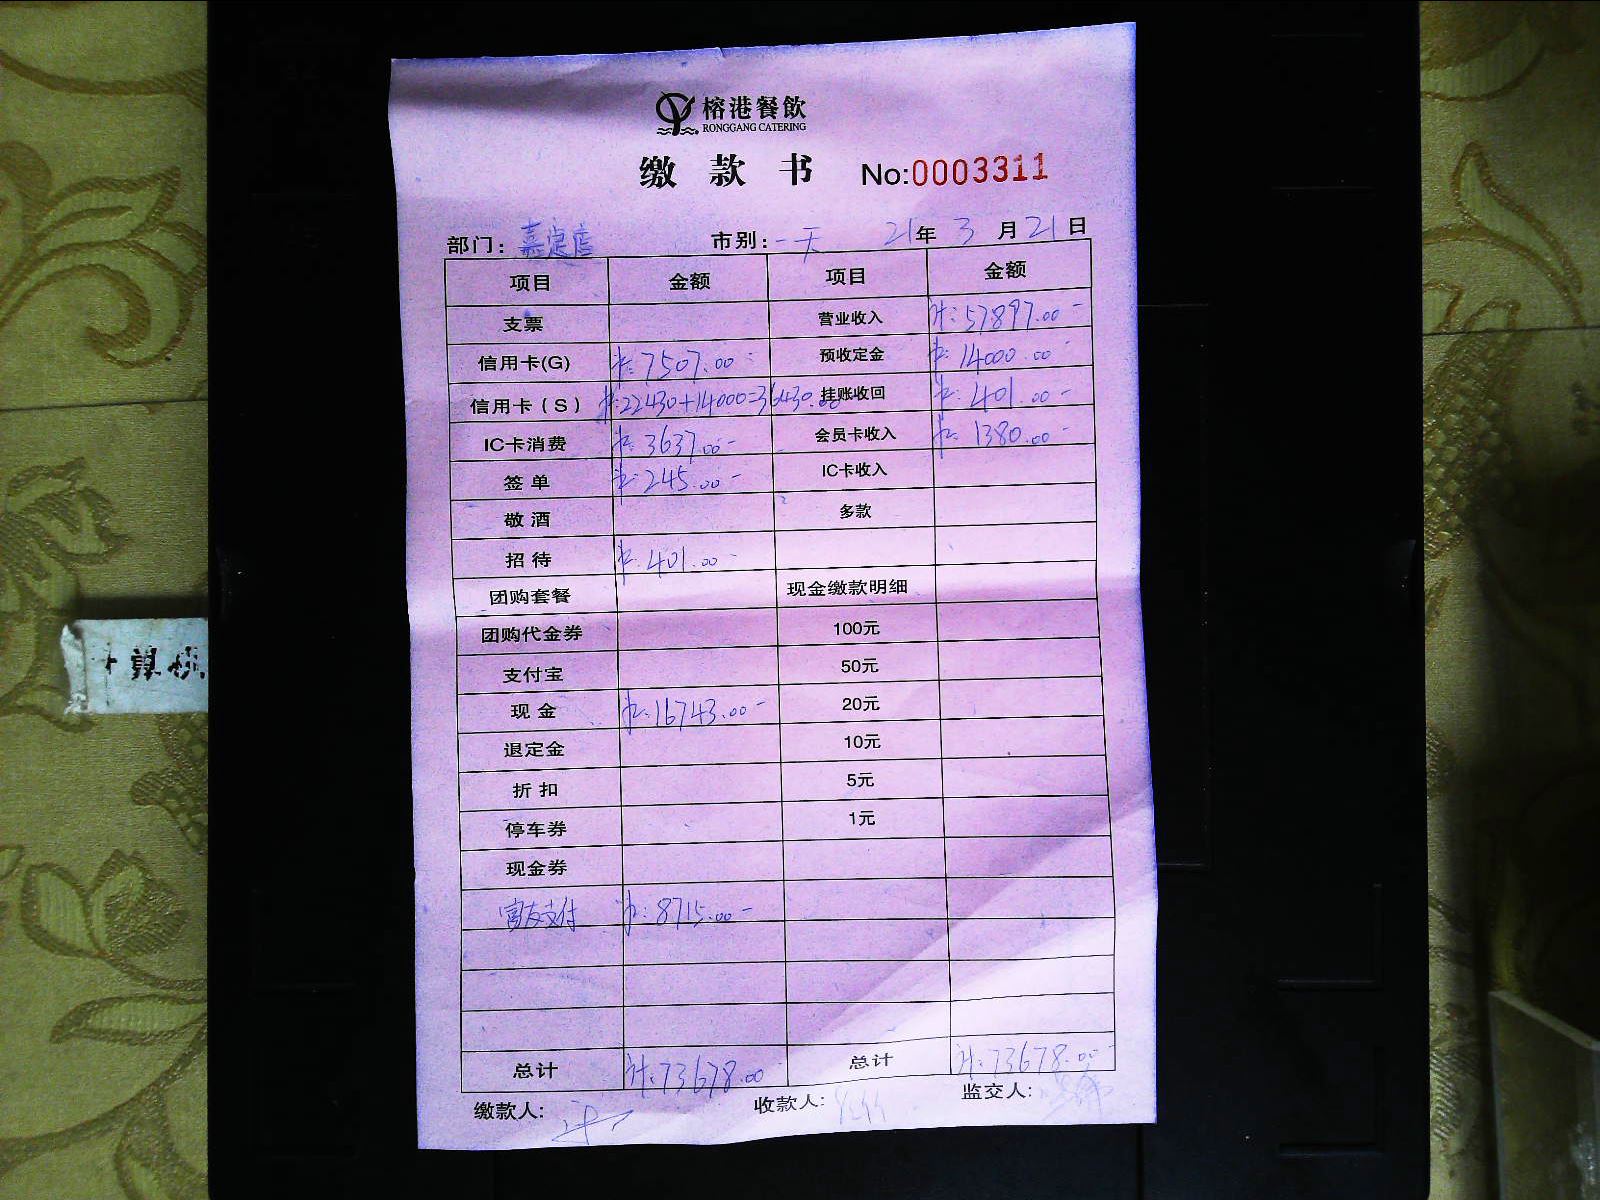 榕港餐飲
RONGGANG CATERING
缴款书 No:0003311
部门: 嘉定店 市别: 一天 21年 3月21日
项目 金额 项目 金额
支票 营业收入 计:57897.00-
信用卡(G) 卡:7507.00- 预收定金 卡:14000.00-
信用卡(S) 卡:22430+14000=36430.00 挂账收回 卡:401.00-
IC卡消费 卡:3637.00- 会员卡收入 卡:1380.00-
签单 卡:245.00- IC卡收入
敬酒 多款
招待 卡:401.00-
团购套餐 现金缴款明细
团购代金券 100元
支付宝 50元
现金 卡:16743.00- 20元
退定金 10元
折扣 5元
停车券 1元
现金券
富友支付 卡:8715.00-
总计 计:73678.00 总计 计:73678.00-
缴款人: 收款人: 监交人:
算机